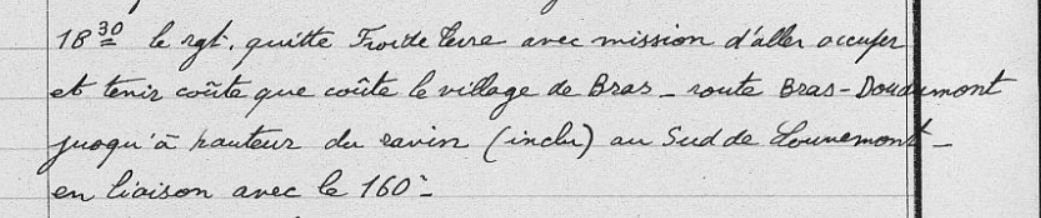 18 30 le rgt. quitte Froide terre avec mission d'aller occuper
et tenir coûte que coûte le village de Bras _ route Bras-Douaumont
jusqu'à hauteur du ravin (inclu) au Sud de Louvemont _
en liaison avec le 160e _